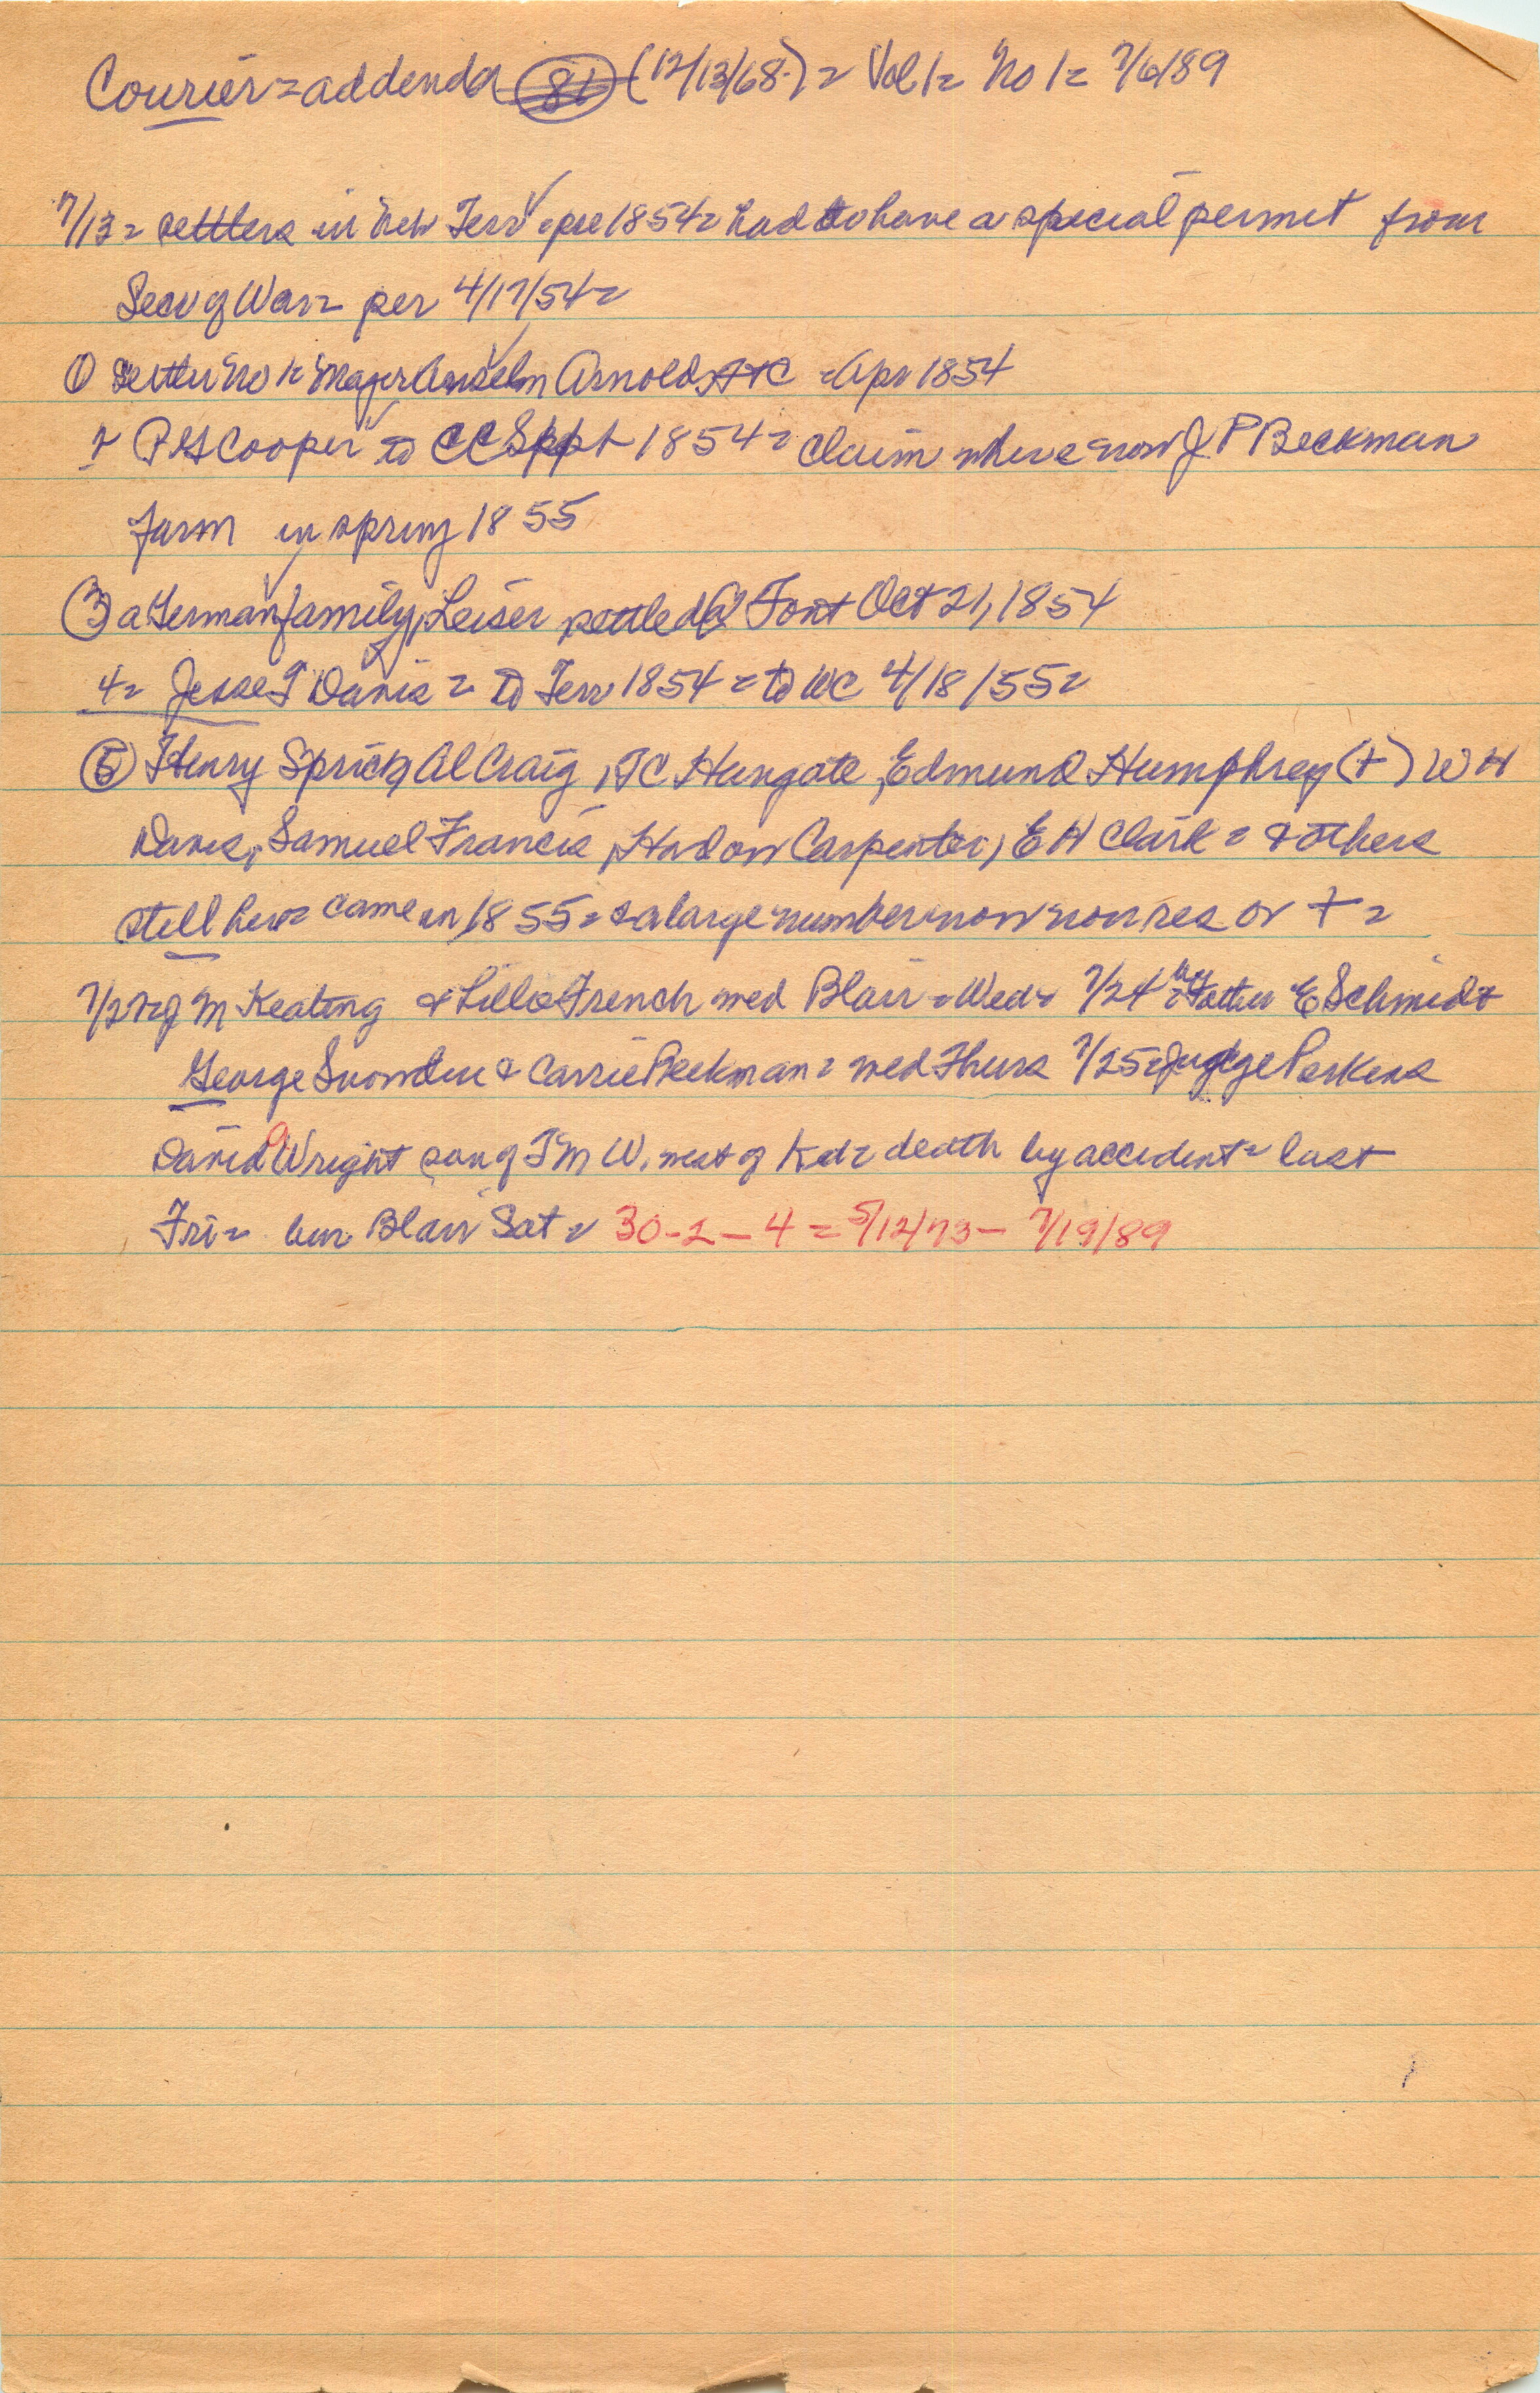 Courier = addenda 81 (12/13/68.) = Vol 1 = No 1 = 7/6/89
7/13 = settlers in Neb Terr = pre 1854 = had to have a special permit from
Sec of War = per 4/17/54 =
① Settler No 1 = Major Anselm Arnold = Apr 1854
2 P G Cooper to CC Sept 1854 = Claim where now J P Beckman
farm in spring 1855
③ a German family, Leiser settled @ Font Oct 21, 1854
4 = Jesse T Davis = to Terr 1854 = to WC 4/18/55 =
⑤ Henry Sprick, Al Craig, T C Hungate, Edmund Humphrey (+) W H
Davis, Samuel Francis, Carpenter, E H Clark = & others
still here = came in 1855 = & a large number now non res or + =
7/27 = J M Keating & Lillie French med Blair = Wed = 7/24 = by Father E Schmidt
George Snowden & Carrie Beekman = med Thurs 7/25 = Judge Perkins
David Wright son of T M W, west of Ked = death by accident = last
Fri = bur Blair Sat = 30-2-4 = 5/12/73 - 7/19/89